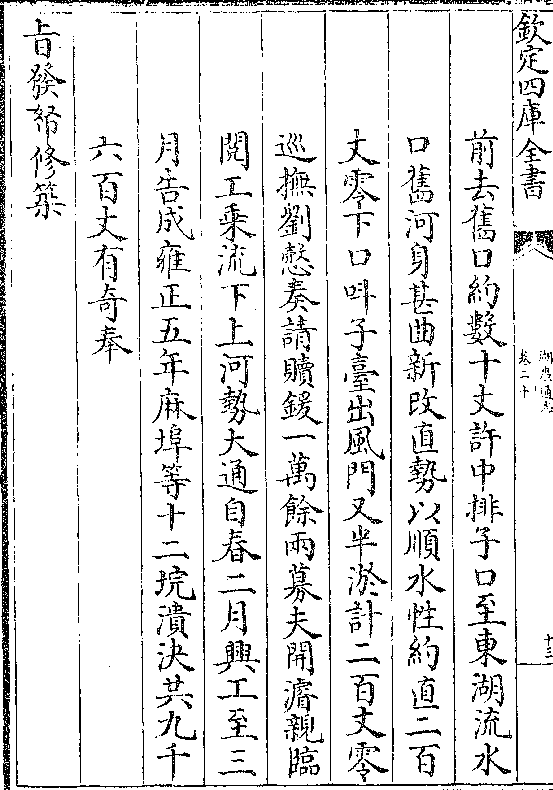 欽定四庫全書
湖廣通志
卷二十
十三
前去舊口約數十丈許中排子口至東湖流水
口舊河身甚曲新改直勢以順水性約直二百
丈零下口呌子臺出風門又半淤計二百丈零
巡撫劉慤奏請贖鍰一萬餘兩募夫開濬親臨
閱工乘流下上河勢大通自春二月興工至三
月告成雍正五年麻埠等十二垸潰決共九千
六百丈有奇奉
㫖發帑修築